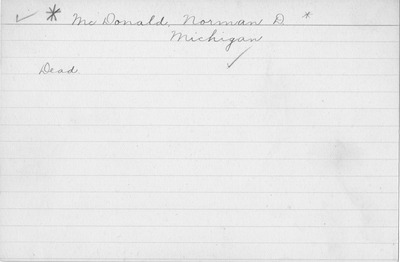 ✓ * Mc Donald, Norman D *
Michigan
✓
Dead.